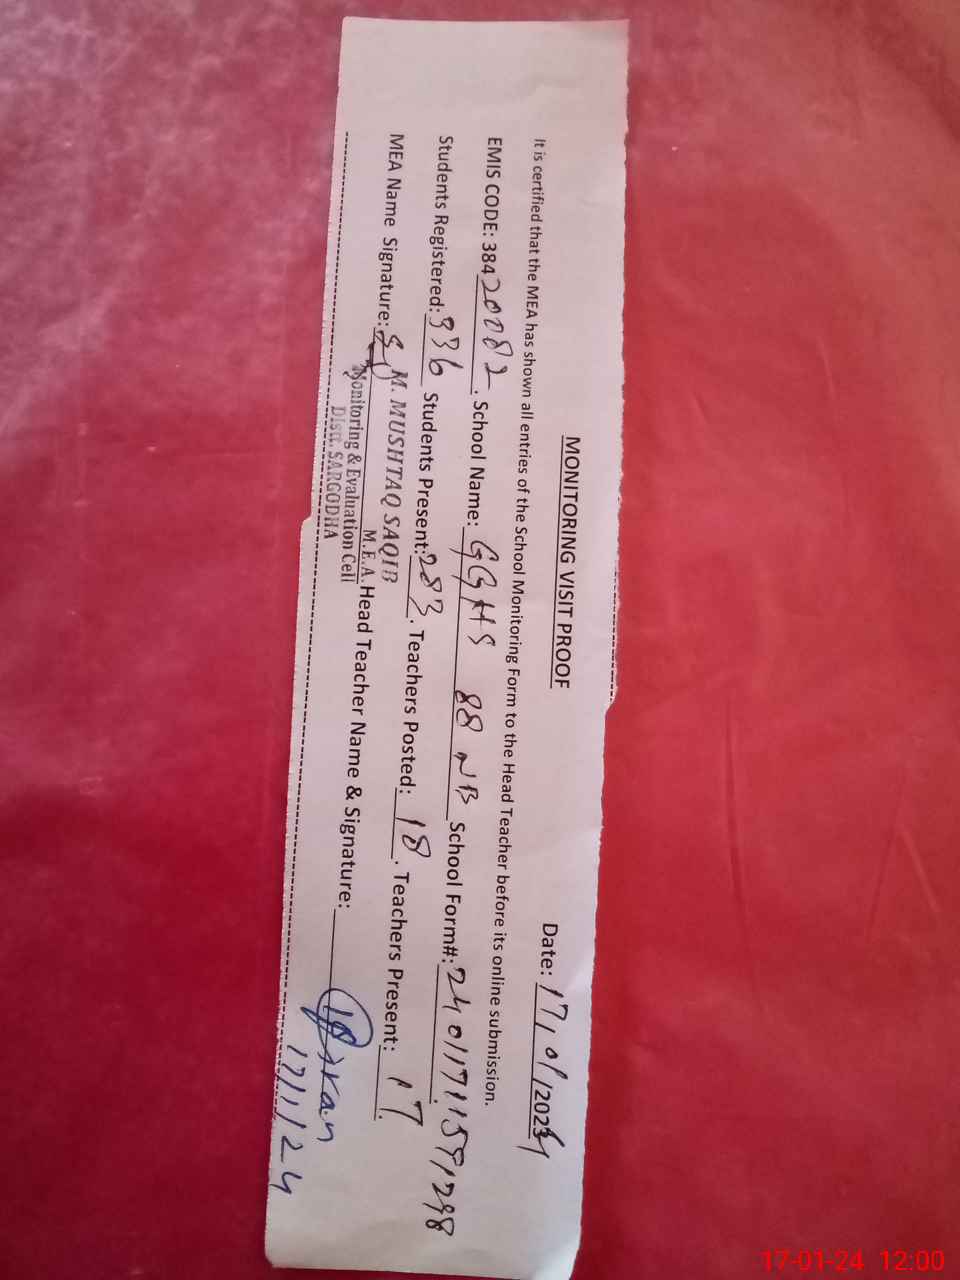 MONITORING VISIT PROOF
Date: 17/01/2024
It is certified that the MEA has shown all entries of the School Monitoring Form to the Head Teacher before its online submission.
EMIS CODE: 38420082. School Name: GGHS 88 NB School Form#: 24011711591298
Students Registered: 336 Students Present: 283. Teachers Posted: 18. Teachers Present: 17.
MEA Name Signature: Head Teacher Name & Signature:
M. MUSHTAQ SAQIB
M.E.A.
Monitoring & Evaluation Cell
Distt. SARGODHA
17/1/24
17-01-24 12:00